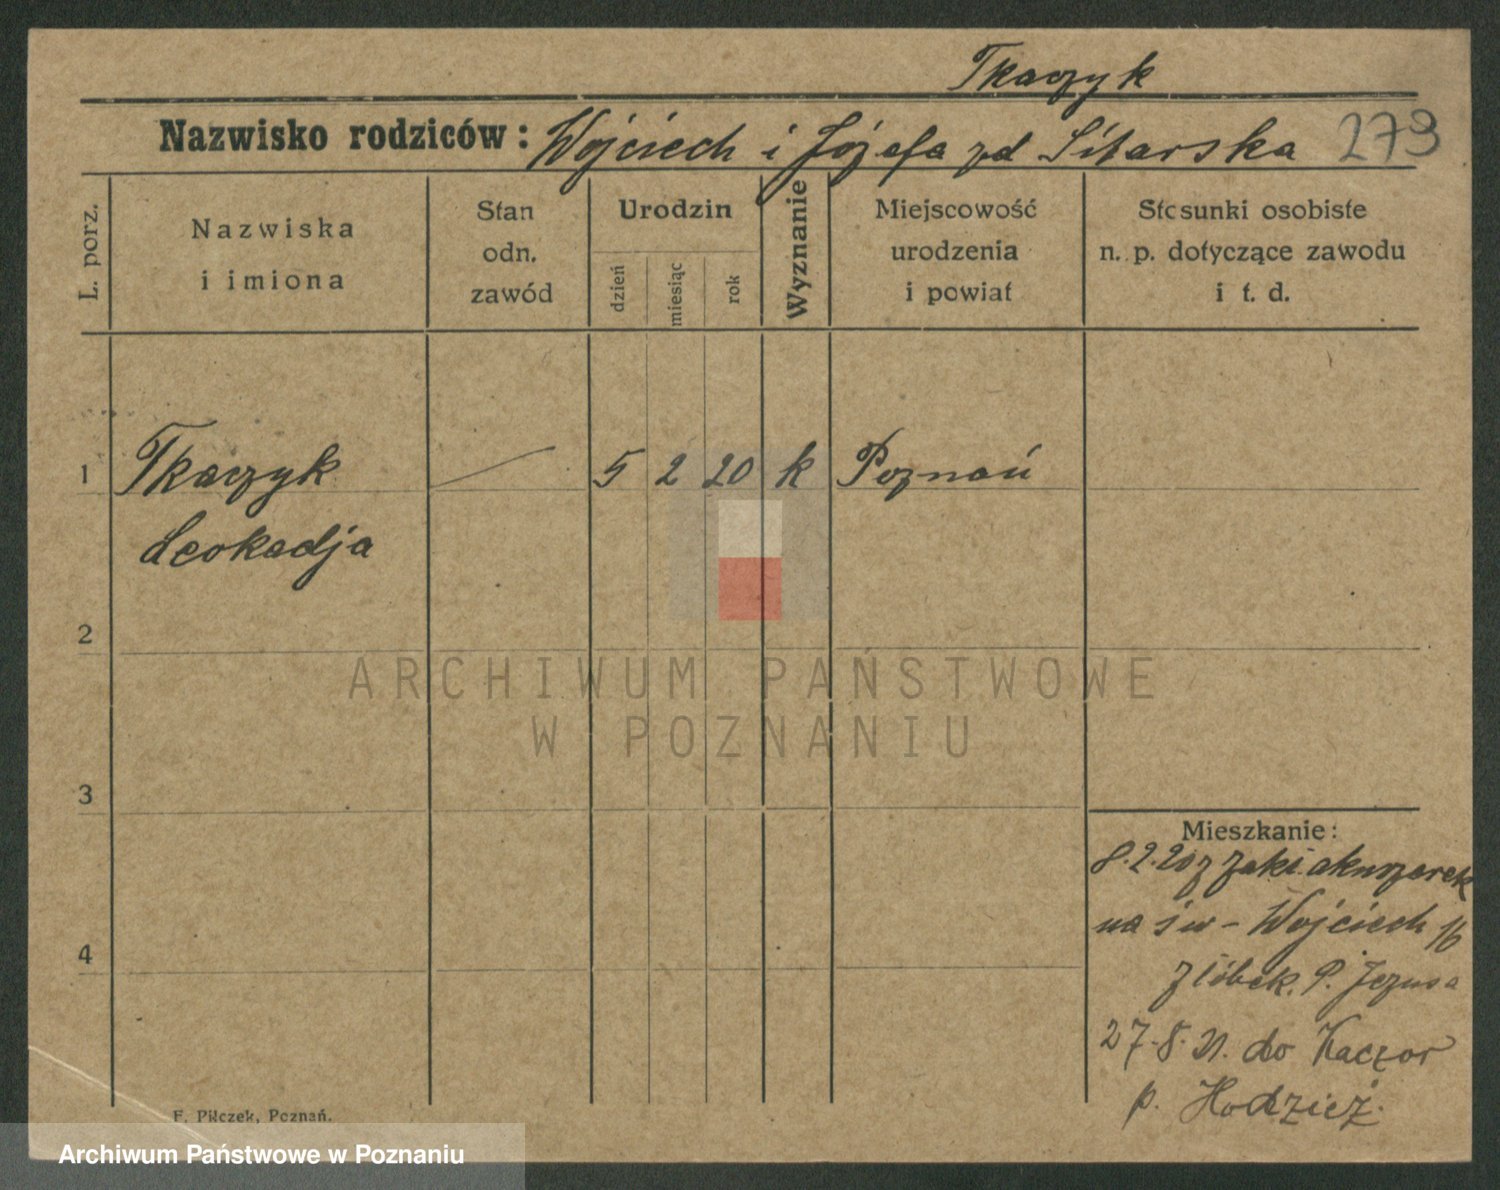 Tkaczyk
Nazwisko rodziców: Wojciech i Józefa zd Sitarska 273
L. porz.
Nazwiska
i imiona
Stan
odn.
zawód
Urodzin
dzień
miesiąc
rok
Wyznanie
Miejscowość
urodzenia
i powiat
Stosunki osobiste
n. p. dotyczące zawodu
i t. d.
1 Tkaczyk 5 2 20 k Poznań
Leokadja
2
ARCHIWUM PAŃSTWOWE
W POZNANIU
3
4
Mieszkanie:
8.2.20 z zakł. akuszerek
na św- Wojciech
żłóbek. P. Jezusa
27.8.21. do Kaczor
p. Hodzież.
F. Pilczek, Poznań.
Archiwum Państwowe w Poznaniu